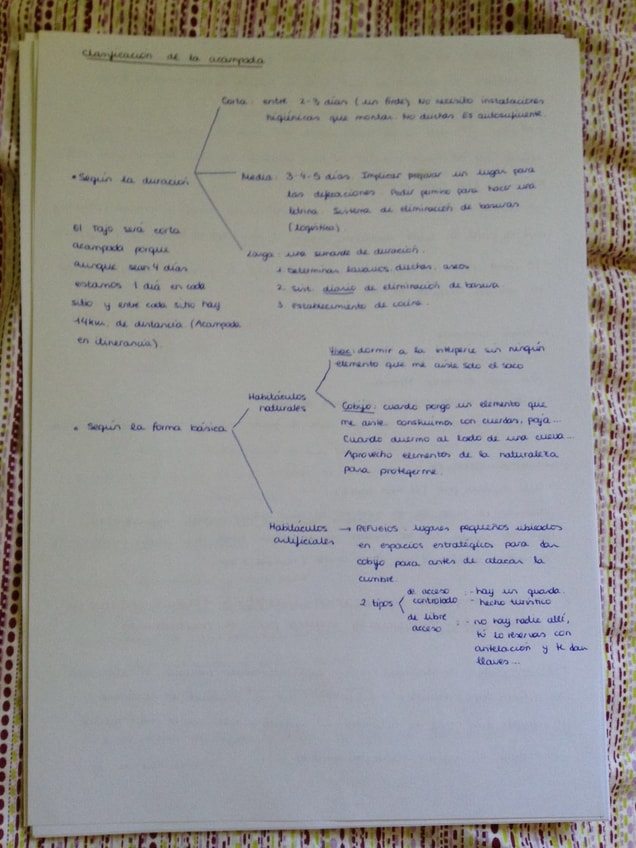 Clasificación de la acampada
Corta: entre 2-3 días (un finde) No necesito instalaciones
higiénicas que montar. No duchas. Es autosuficiente.
• Según la duración
Media: 3-4-5 días. Implicar preparar un lugar para
las defecaciones. Pedir permiso para hacer una
letrina. Sistema de eliminación de basuras
(Logística)
El Tajo será corta
acampada porque
aunque sean 4 días
estamos 1 día en cada
sitio y entre cada sitio hay
14km. de distancia. (Acampada
en itinerancia).
Larga: una semana de duración.
1. Determinar lavarios, duchas, aseos
2. Sist. diario de eliminación de basura.
3. Establecimiento de cocina.
• Según la forma básica
Habitáculos
naturales
Vivac: dormir a la intemperie sin ningún
elemento que me aísle solo el saco
Cobijo: cuando pongo un elemento que
me aísle. construimos con cuerdas, paja...
Cuando duermo al lado de una cueva...
Aprovecho elementos de la naturaleza
para protegerme.
Habitáculos
artificiales
→ REFUGIOS: lugares pequeños ubicados
en espacios estratégicos para dar
cobijo para antes de atacar la
cumbre
2 tipos
de acceso
controlado
: - hay un guarda.
- hecho turístico
de libre
acceso
: - no hay nadie allí,
tú lo reservas con
antelación y te dan
llaves...